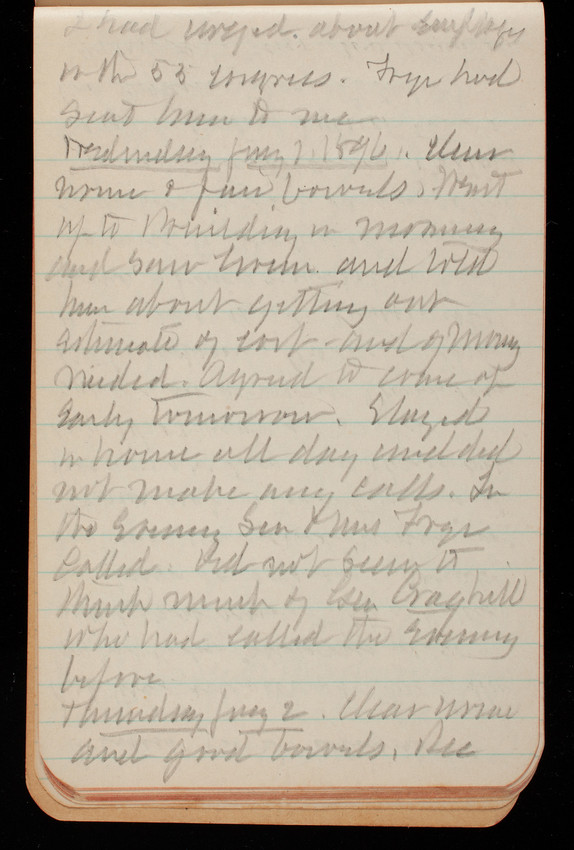 I had urged about
in the 53 congress. Frye had
sent him to me
Wednesday Jany 1, 1896. Clear
urine & fair bowels. Went
up to building in morning
and saw Green and told
him about getting out
estimate of cost and of money
needed. Agreed to come up
early tomorrow. Stayed
in house all day and did
not make any calls. In
the Evening Sen & Mrs Frye
Called. Did not seem to
think much of Gen Craghill
who had called the Evening
before
Thursday Jany 2. Clear urine
and good bowels. Rec